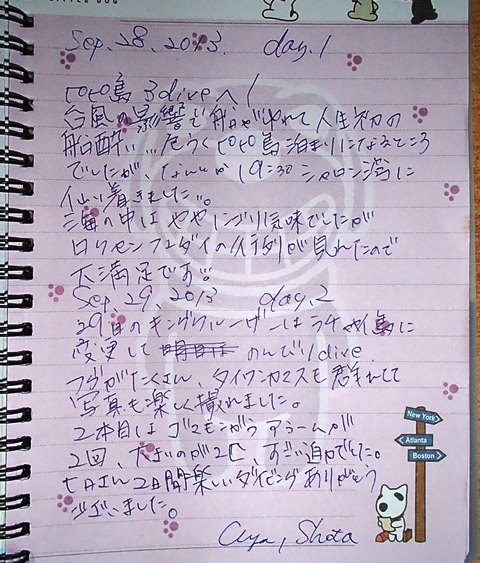 Sep. 28. 2013. day. 1
ピピ島 3diveへ！
台風の影響で船がゆれて人生初の
船酔い…危うくピピ島泊まりになるところ
でしたが、なんとか19:30 シャロン湾に
着きました。
海の中はややにごり気味でしたが
ロクセンフエダイの行列が見れたので
大満足です。
Sep. 29. 2013 day. 2
29日のキングクルーザーはラチャ島に
変更して のんびり dive.
フグがたくさん、タイワンカマスも群れてて
写真も楽しく撮れました。
2本目はゴマモンガラアラームが
2回、大きいのが2匹 すごい迫力でした。
七月さん2日間楽しいダイビングありがとう
ございました。
Aya, Shota
New York
Atlanta
Boston